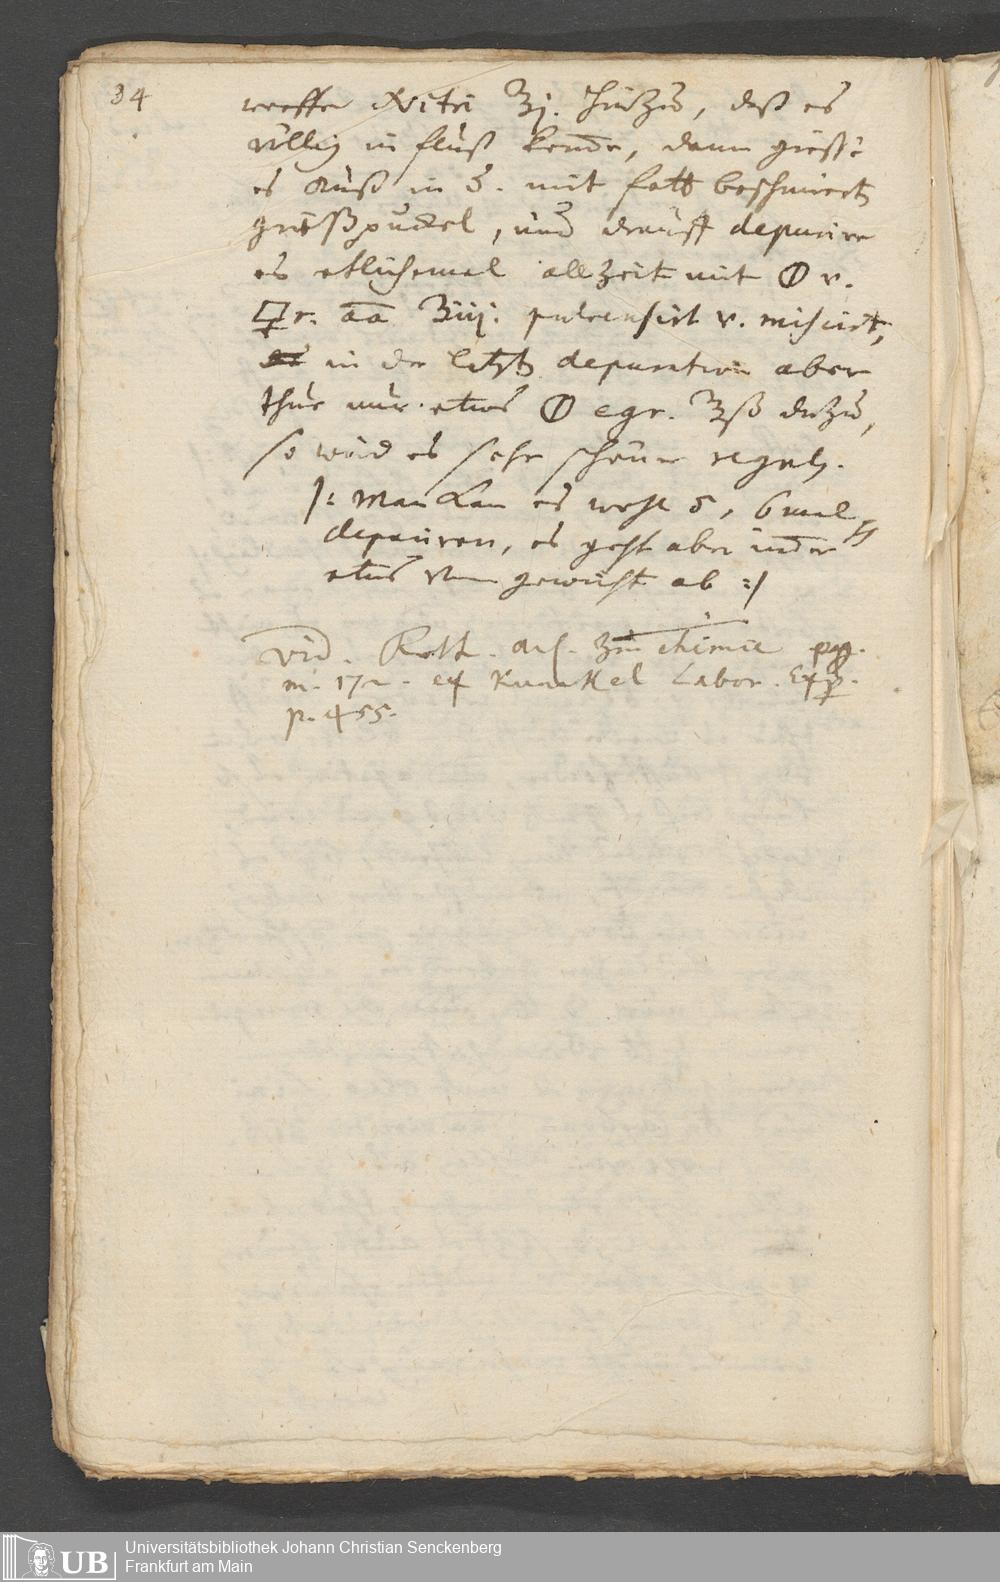 34
werffe Nitri ℥j. hinzu, daß es
völlig in fluß komme, dann gieße
es auß in mit fett beschmiert
gießpuckel, und drauff depurire
es etlichemal allzeit mit 🜕 v.
🜿r. āā ℥iij. pulverisirt v. miscirt,
in der letzt depuration aber
thue nur etwas 🜕 egr. ℥ß dazu,
so wird es sehr schöner regul.
/: Man kan es wohl 5, 6 mal
depuriren, es geht aber immer
etwas vom gewicht ab :/
vid. Roth. zur chimie pag.
m. 172. et Kunckel Labor. Exp.
p. 455.
UB Universitätsbibliothek Johann Christian Senckenberg
Frankfurt am Main